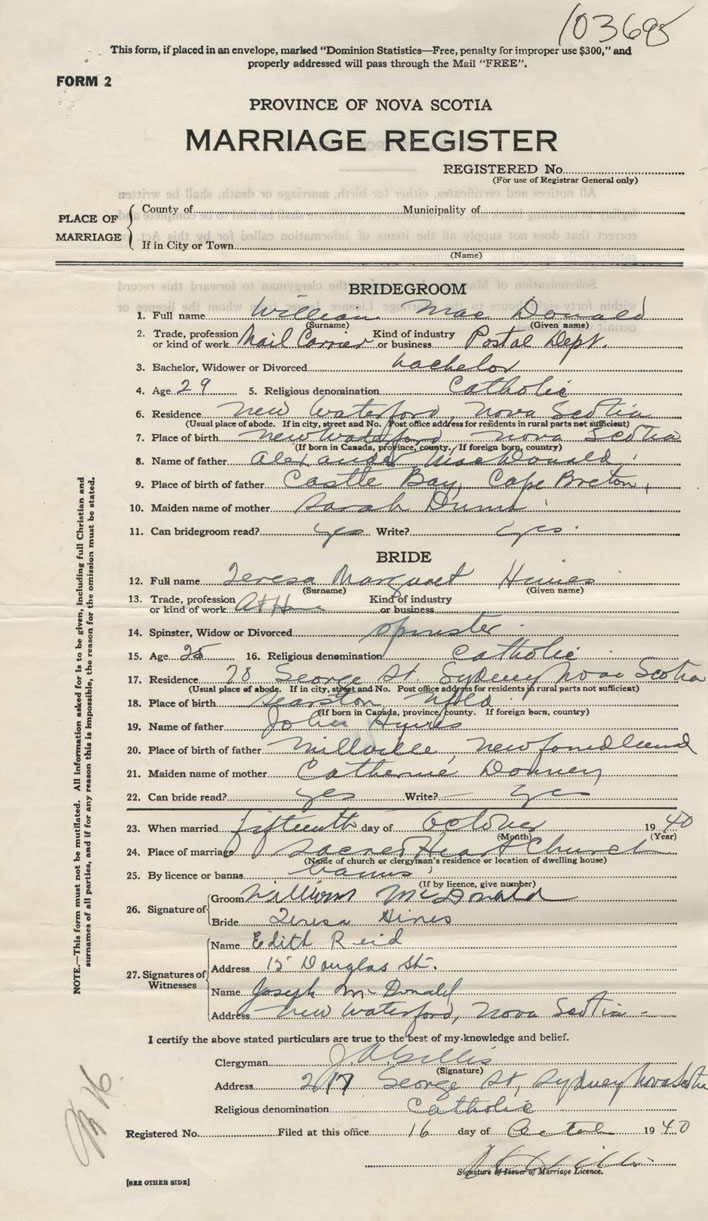 103695
This form, if placed in an envelope, marked "Dominion Statistics—Free, penalty for improper use $300," and
properly addressed will pass through the Mail "FREE".
FORM 2
PROVINCE OF NOVA SCOTIA
MARRIAGE REGISTER
REGISTERED No.
(For use of Registrar General only)
PLACE OF MARRIAGE
County of Municipality of
If in City or Town
(Name)
BRIDEGROOM
1. Full name William Mac Donald
(Surname) (Given name)
2. Trade, profession or kind of work Mail Carrier Kind of industry or business Postal Dept.
3. Bachelor, Widower or Divorced bachelor
4. Age 29 5. Religious denomination Catholic
6. Residence New Waterford, Nova Scotia
(Usual place of abode. If in city, street and No. Post office address for residents in rural parts not sufficient)
7. Place of birth New Waterford Nova Scotia
(If born in Canada, province, county. If foreign born, country)
8. Name of father Alexander MacDonald
9. Place of birth of father Castle Bay, Cape Breton,
10. Maiden name of mother Sarah
11. Can bridegroom read? yes Write? yes.
BRIDE
12. Full name Teresa Margaret Hines
(Surname) (Given name)
13. Trade, profession or kind of work At Home Kind of industry or business
14. Spinster, Widow or Divorced spinster
15. Age 25 16. Religious denomination Catholic
17. Residence 28 George St. Sydney Nova Scotia
(Usual place of abode. If in city, street and No. Post office address for residents in rural parts not sufficient)
18. Place of birth Searston Nfld
(If born in Canada, province, county. If foreign born, country)
19. Name of father John Hynes
20. Place of birth of father Millville, Newfoundland
21. Maiden name of mother Catherine Downey
22. Can bride read? yes Write? yes
23. When married fifteenth day of October 1940
(Month) (Year)
24. Place of marriage Sacred Heart Church
(Name of church or clergyman's residence or location of dwelling house)
25. By licence or banns banns
(If by licence, give number)
26. Signature of
Groom William McDonald
Bride Teresa Hines
27. Signatures of Witnesses
Name Edith Reid
Address 15 Douglas St.
Name Joseph McDonald
Address New Waterford, Nova Scotia
I certify the above stated particulars are true to the best of my knowledge and belief.
Clergyman J A Gillis
(Signature)
Address 217 George St, Sydney Nova Scotia
Religious denomination Catholic
Registered No. Filed at this office 16 day of 1940
Signature of Issuer of Marriage Licence.
[SEE OTHER SIDE]
NOTE.—This form must not be mutilated. All information asked for is to be given, including full Christian and
surnames of all parties, and if for any reason this is impossible, the reason for the omission must be stated.